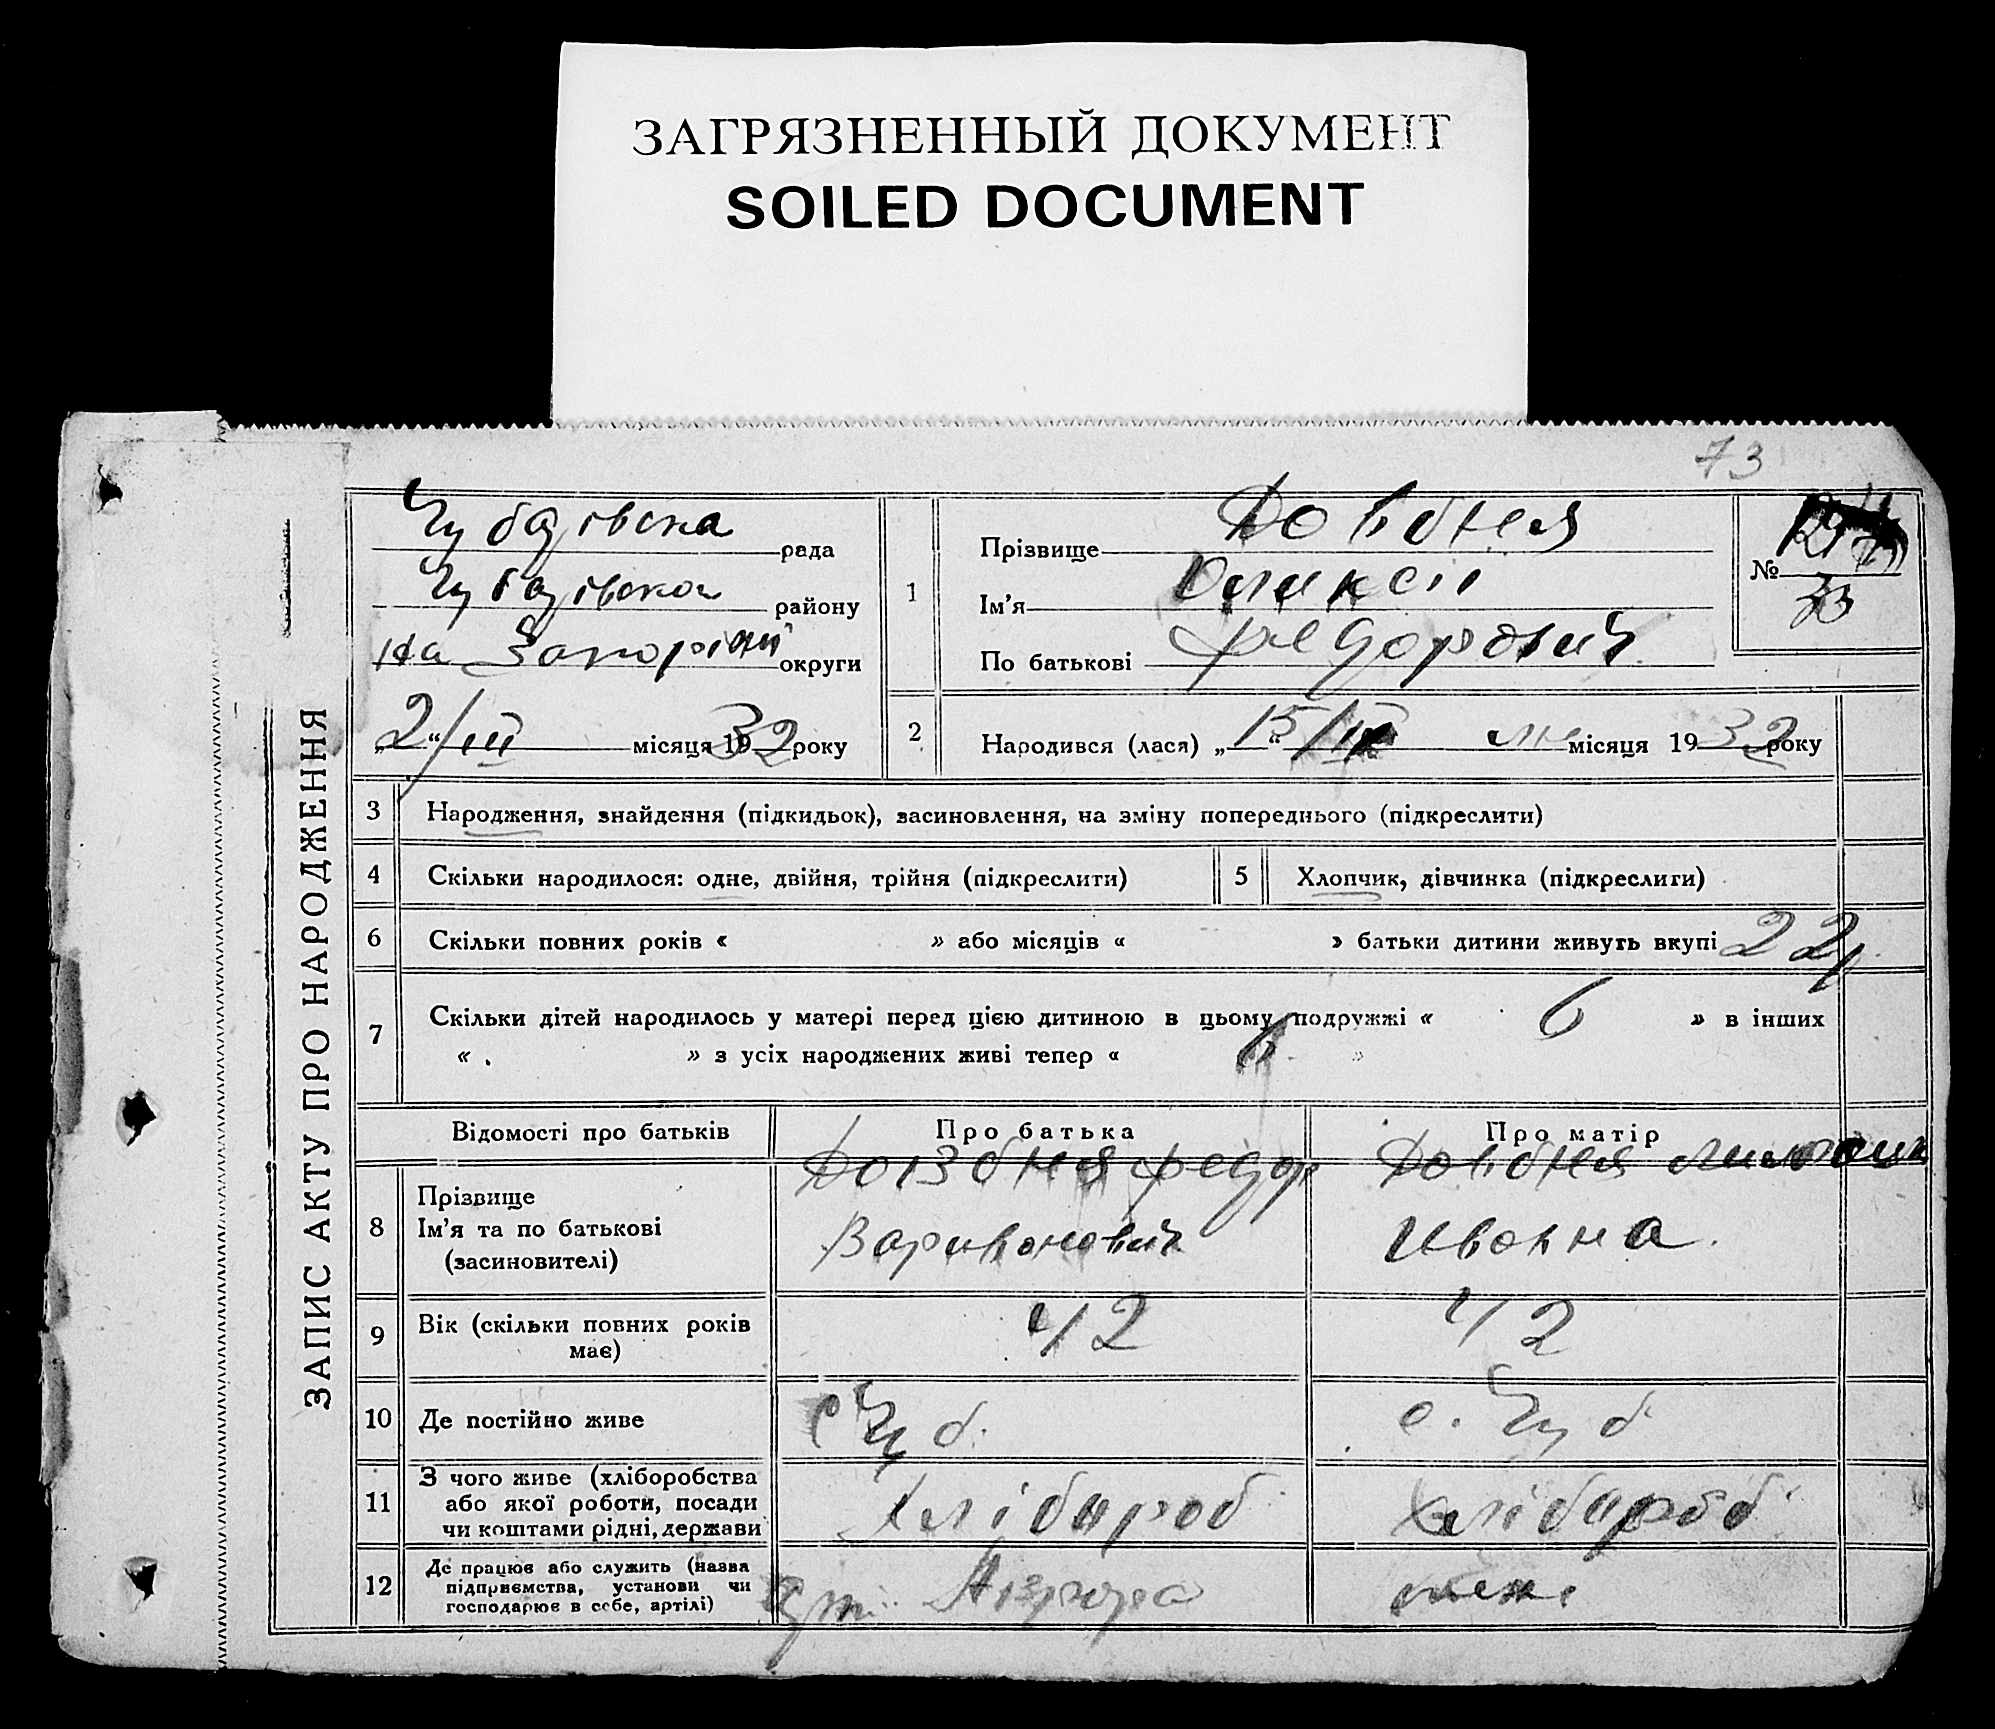 ЗАГРЯЗНЕННЫЙ ДОКУМЕНТ
SOILED DOCUMENT
73
ЗАПИС АКТУ ПРО НАРОДЖЕННЯ
Чубарівска рада
Чубарівског району
на Запоріжі округи
2/III місяця 1932 року
1
Прізвище Довбня
Ім'я Оликсіі
По батькові Федорович
№
33
2
Народився (лася) „15/II місяця 1932 року
3 Народження, знайдення (підкидьок), засиновлення, на зміну попереднього (підкреслити)
4 Скільки народилося: одне, двійня, трійня (підкреслити) 5 Хлопчик, дівчинка (підкреслити)
6 Скільки повних років « » або місяців « » батьки дитини живуть вкупі 22 р.
7 Скільки дітей народилось у матері перед цією дитиною в цьому подружжі « 6 » в інших
« . » з усіх народжених живі тепер « 6 »
Відомості про батьків Про батька Про матір
8 Прізвище
Ім'я та по батькові
(засиновителі)
Довбня Федор
Варивонович
Довбня
Ивовна.
9 Вік (скільки повних років має) 42 42
10 Де постійно живе с Чуб. с. Чуб
11 З чого живе (хліборобства
або якої роботи, посади
чи коштами рідні, держави
Хлібороб Хлібороб
12 Де працює або служить (назва
підприємства, установи чи
господарює в себе, артілі)